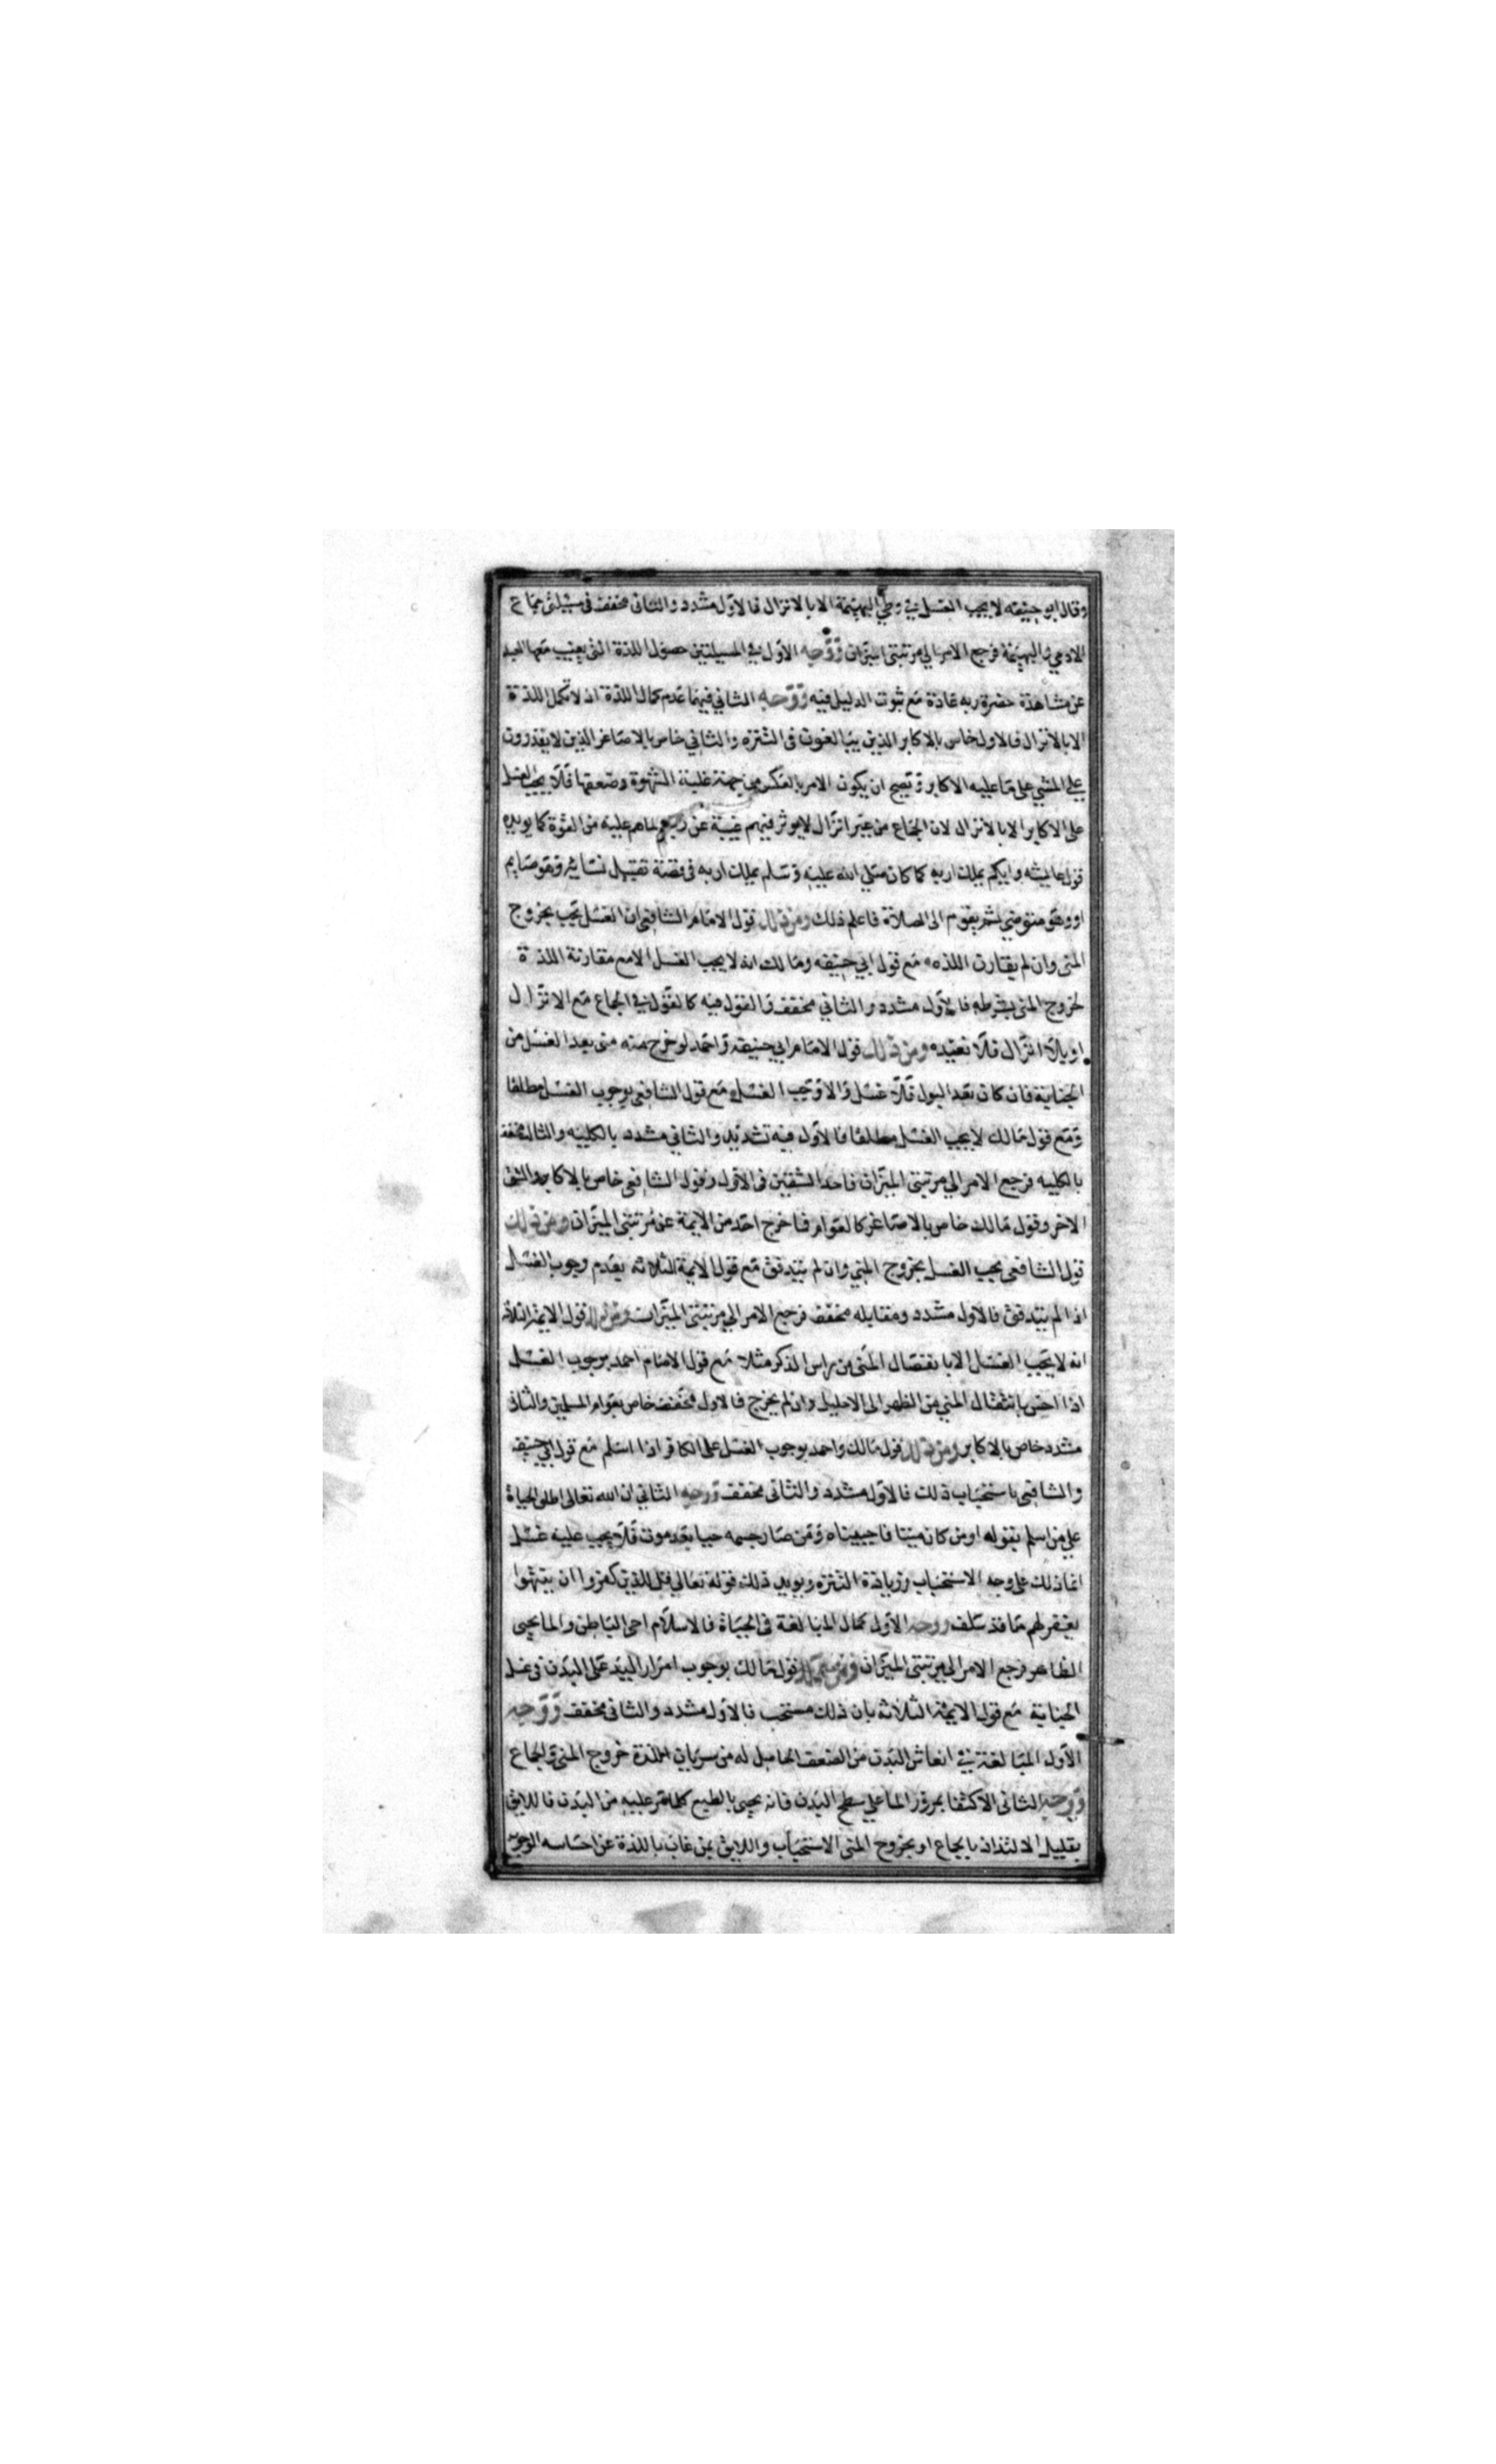 وقال ابو حنيفه لا يجب الغسل في وطي البهيمة الا بالانزال فالاول مشدد والثاني مخفف في مسئلتي جماع
الادمي والبهيمة فرجع الامر الي مرتبتي الميزان ووجه الاول في المسيلتين حصول اللذة التي يغيب معها العبد
عن مشاهدة حضرة ربه عادة مع ثبوت الدليل فيه ووجه الثاني فيهما عدم كمال اللذة اذ لا تكمل اللذة
الا بالانزال فالاول خاص بالاكابر الذين يبالغون في التنزه والثاني خاص بالاصاغر الذين لا يقدرون
علي المشي على ما عليه الاكابر ويصح ان يكون الامر بالعكس من جهة غلبة الشهوة وضعفها فلا يجب الغسل
على الاكابر الا بالانزال لان الجماع من غير انزال لا يوثر فيهم غيبة عن ربهم لما هم عليه من القوة كما يويده
قول عايشه وايكم يملك اربه كما كان صلي الله عليه وسلم يملك اربه في قصة تقبيل نسائه وهو صايم
او وهو متوضي ثم يقوم الى الصلاة فاعلم ذلك ومن ذلك قول الامام الشافعي ان الغسل يجب بخروج
المني وان لم يقارن اللذه مع قول ابي حنيفه ومالك انه لا يجب الغسل الا مع مقارنة اللذة
لخروج المني بشرطه فالاول مشدد والثاني مخفف والقول فيه كالقول في الجماع مع الانزال
او بلا انزال فلا نعيده ومن ذلك قول الامام ابي حنيفه واحمد لو خرج منه مني بعد الغسل من
الجنابة فان كان بعد البول فلا غسل والا وجب الغسل مع قول الشافعي بوجوب الغسل مطلقا
ومع قول مالك لا يجب الغسل مطلقا فالاول فيه تشديد والثاني مشدد بالكلية والثالث مخفف
بالكليه فرجع الامر الي مرتبتي الميزان فاحد الشقين في الاول وقول الشافعي خاص بالاكابر والشق
الاخر وقول مالك خاص بالاصاغر كالعوام فما خرج احد من الايمة عن مرتبتي الميزان ومن ذلك
قول الشافعي يجب الغسل بخروج المني وان لم يتدفق مع قول الايمة الثلاثه بعدم وجوب الغسل
اذا لم يتدفق فالاول مشدد ومقابله مخفف فرجع الامر الي مرتبتي الميزان ومن ذلك قول الايمة الثلاثه
انه لا يجب الغسل الا بانفصال المني من راس الذكر مثلا مع قول الامام احمد بوجوب الغسل
اذا احس بانتقال المني من الظهر الى الاحليل وان لم يخرج فالاول مخفف خاص بعوام المسلمين والثاني
مشدد خاص بالاكابر ومن ذلك قول مالك واحمد بوجوب الغسل على الكافر اذا اسلم مع قول ابي حنيفه
والشافعي باستحباب ذلك فالاول مشدد والثاني مخفف ووجه الثاني ان الله تعالى اطلق الحياة
علي من اسلم بقوله اومن كان ميتا فاحييناه ومن صار جسمه حيا بعد موت فلا يجب عليه غسل
انما ذلك على وجه الاستحباب وزيادة التنزه ويويد ذلك قوله تعالي قل للذين كفروا ان ينتهوا
يغفر لهم ما قد سلف ووجه الاول كمال المبالغة في الحياة فالاسلام احي الباطن والما يحيي
الظاهر فرجع الامر الي مرتبتي الميزان ومن ذلك قول مالك بوجوب امرار اليد على البدن في غسل
الجنابة مع قول الايمة الثلاثه بان ذلك مستحب فالاول مشدد والثاني مخفف ووجه
الاول المبالغة في انعاش البدن من الضعف الحاصل له من سريان اللذة خروج المني والجماع
ووجه الثاني الاكتفا بمرور الما علي سطح البدن فانه يحيي بالطبع كلما مر عليه من البدن فاللايق
بقليل الالتذاذ بالجماع او بخروج المني الاستحباب واللايق بمن غاب باللذة عن احساسه الوجوب